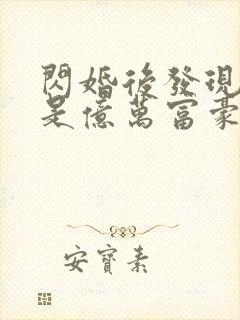 閃婚後發現
是億萬富豪
安寶素